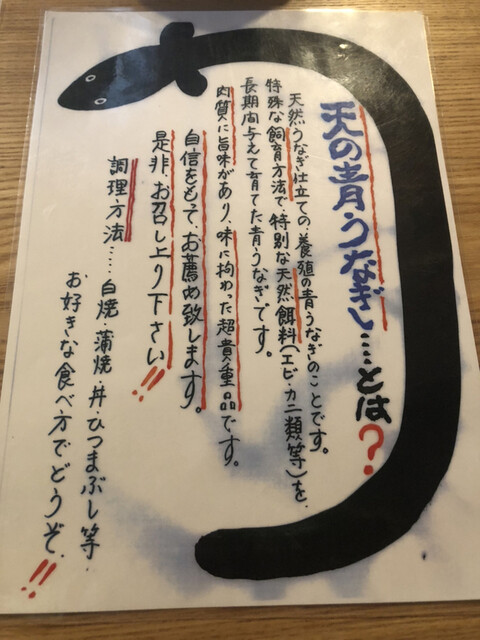 天の青うなぎ……とは？
天然うなぎ仕立ての、養殖の青うなぎのことです。
特殊な飼育方法で特別な天然餌料(エビ・カニ類等)を、
長期間与えて育てた青うなぎです。
肉質に旨味があり、味に拘わった超貴重品です。
自信をもって、お薦め致します。
是非、お召し上り下さい!!
調理方法……白焼・蒲焼・丼・ひつまぶし等、
お好きな食べ方でどうぞ!!